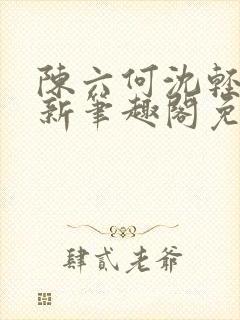 陳六何沈輕
新筆趣閣免
肆貳老爺